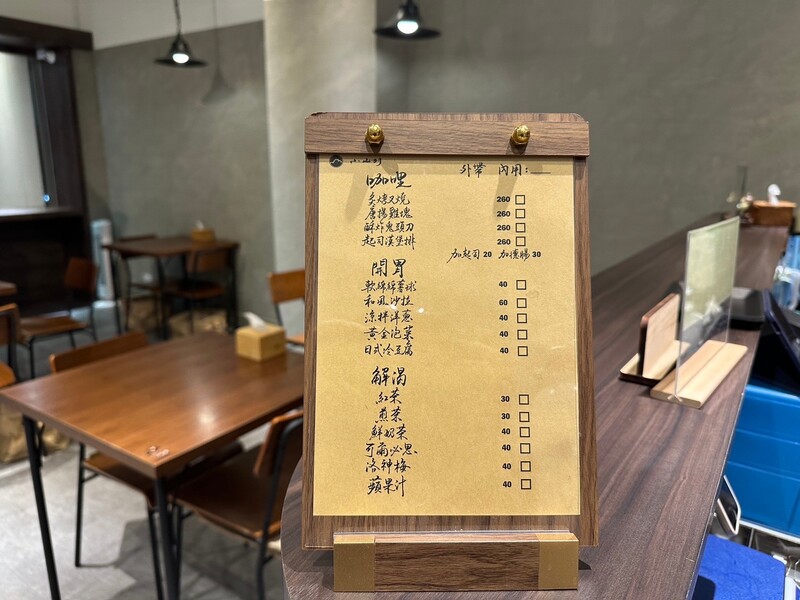 外帶 內用：
咖哩
炙燒叉燒 260 □
唐揚雞塊 260 □
酥炸鬼頭刀 260 □
起司漢堡排 260 □
加起司 20 加德腸 30
開胃
軟綿綿薯球 40 □
和風沙拉 60 □
涼拌洋蔥 40 □
黃金泡菜 40 □
日式冷豆腐 40 □
解渴
紅茶 30 □
煎茶 30 □
鮮奶茶 40 □
可爾必思 40 □
洛神梅 40 □
蘋果汁 40 □